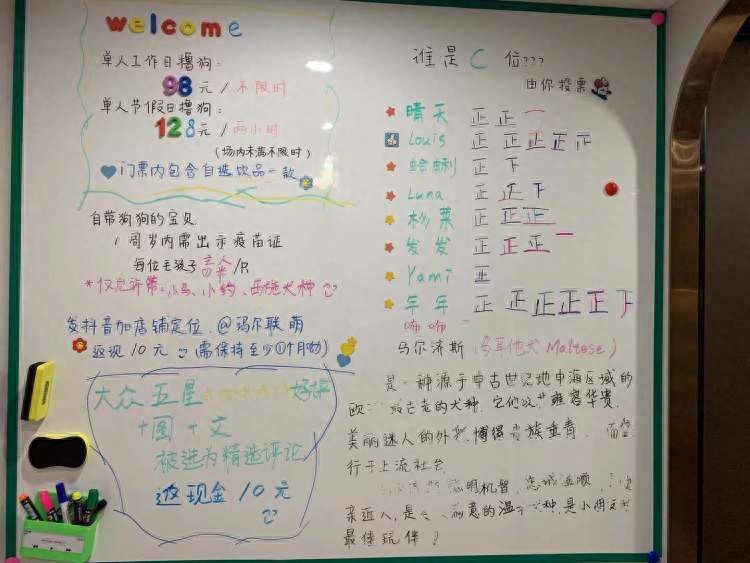 welcome
单人工作日撸狗:
98元/不限时
单人节假日撸狗:
128元/两小时
(场内未满不限时)
门票内包含自选饮品一款
自带狗狗的宝贝
1周岁内需出示疫苗证
每位毛孩子 /只
*仅允许带:小马、小约、西施犬种
发抖音加店铺定位.@玛尔联萌
返现10元 (需保持至少①个月呦)
大众五星 好评
+图+文
被选为精选评论
返现金10元
谁是C位???
由你投票
晴天 正正一
Louis 正正正正正正
蛤蜊 正下
Luna 正正下
杉菜 正正正
发发 正正正一
Yami 正
年年 正正正正正下
马尔济斯(马耳他犬 Maltese)
是一种源于中古世纪地中海区域的
欧 古老的犬种.它们以其雍容华贵.
美丽迷人的外 博得贵族垂青.
行于上流社会
聪明机智. 忠诚
亲近人,是 的温 种,是小朋友
最佳玩伴?